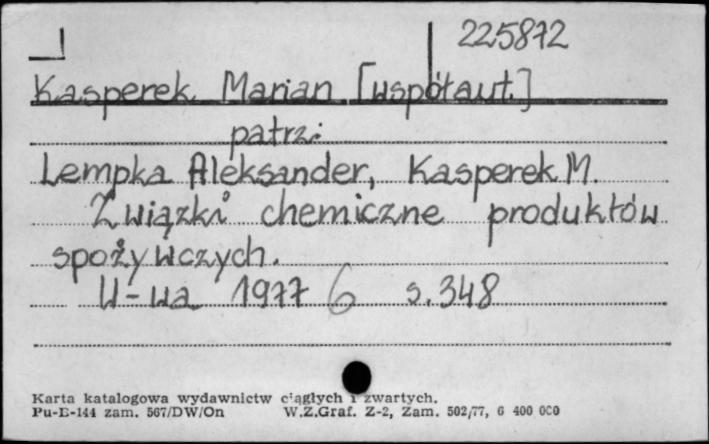 225872
Kasperek Marian [współaut.]
patrz:
Lempka Aleksander, Kasperek M.
Związki chemiczne produktów
spożywczych.
W-wa 1977 6 s. 348
Karta katalogowa wydawnictw ciągłych i zwartych.
Pu-E-144 zam. 567/DW/On W.Z.Graf. Z-2, Zam. 502/77, 6 400 000